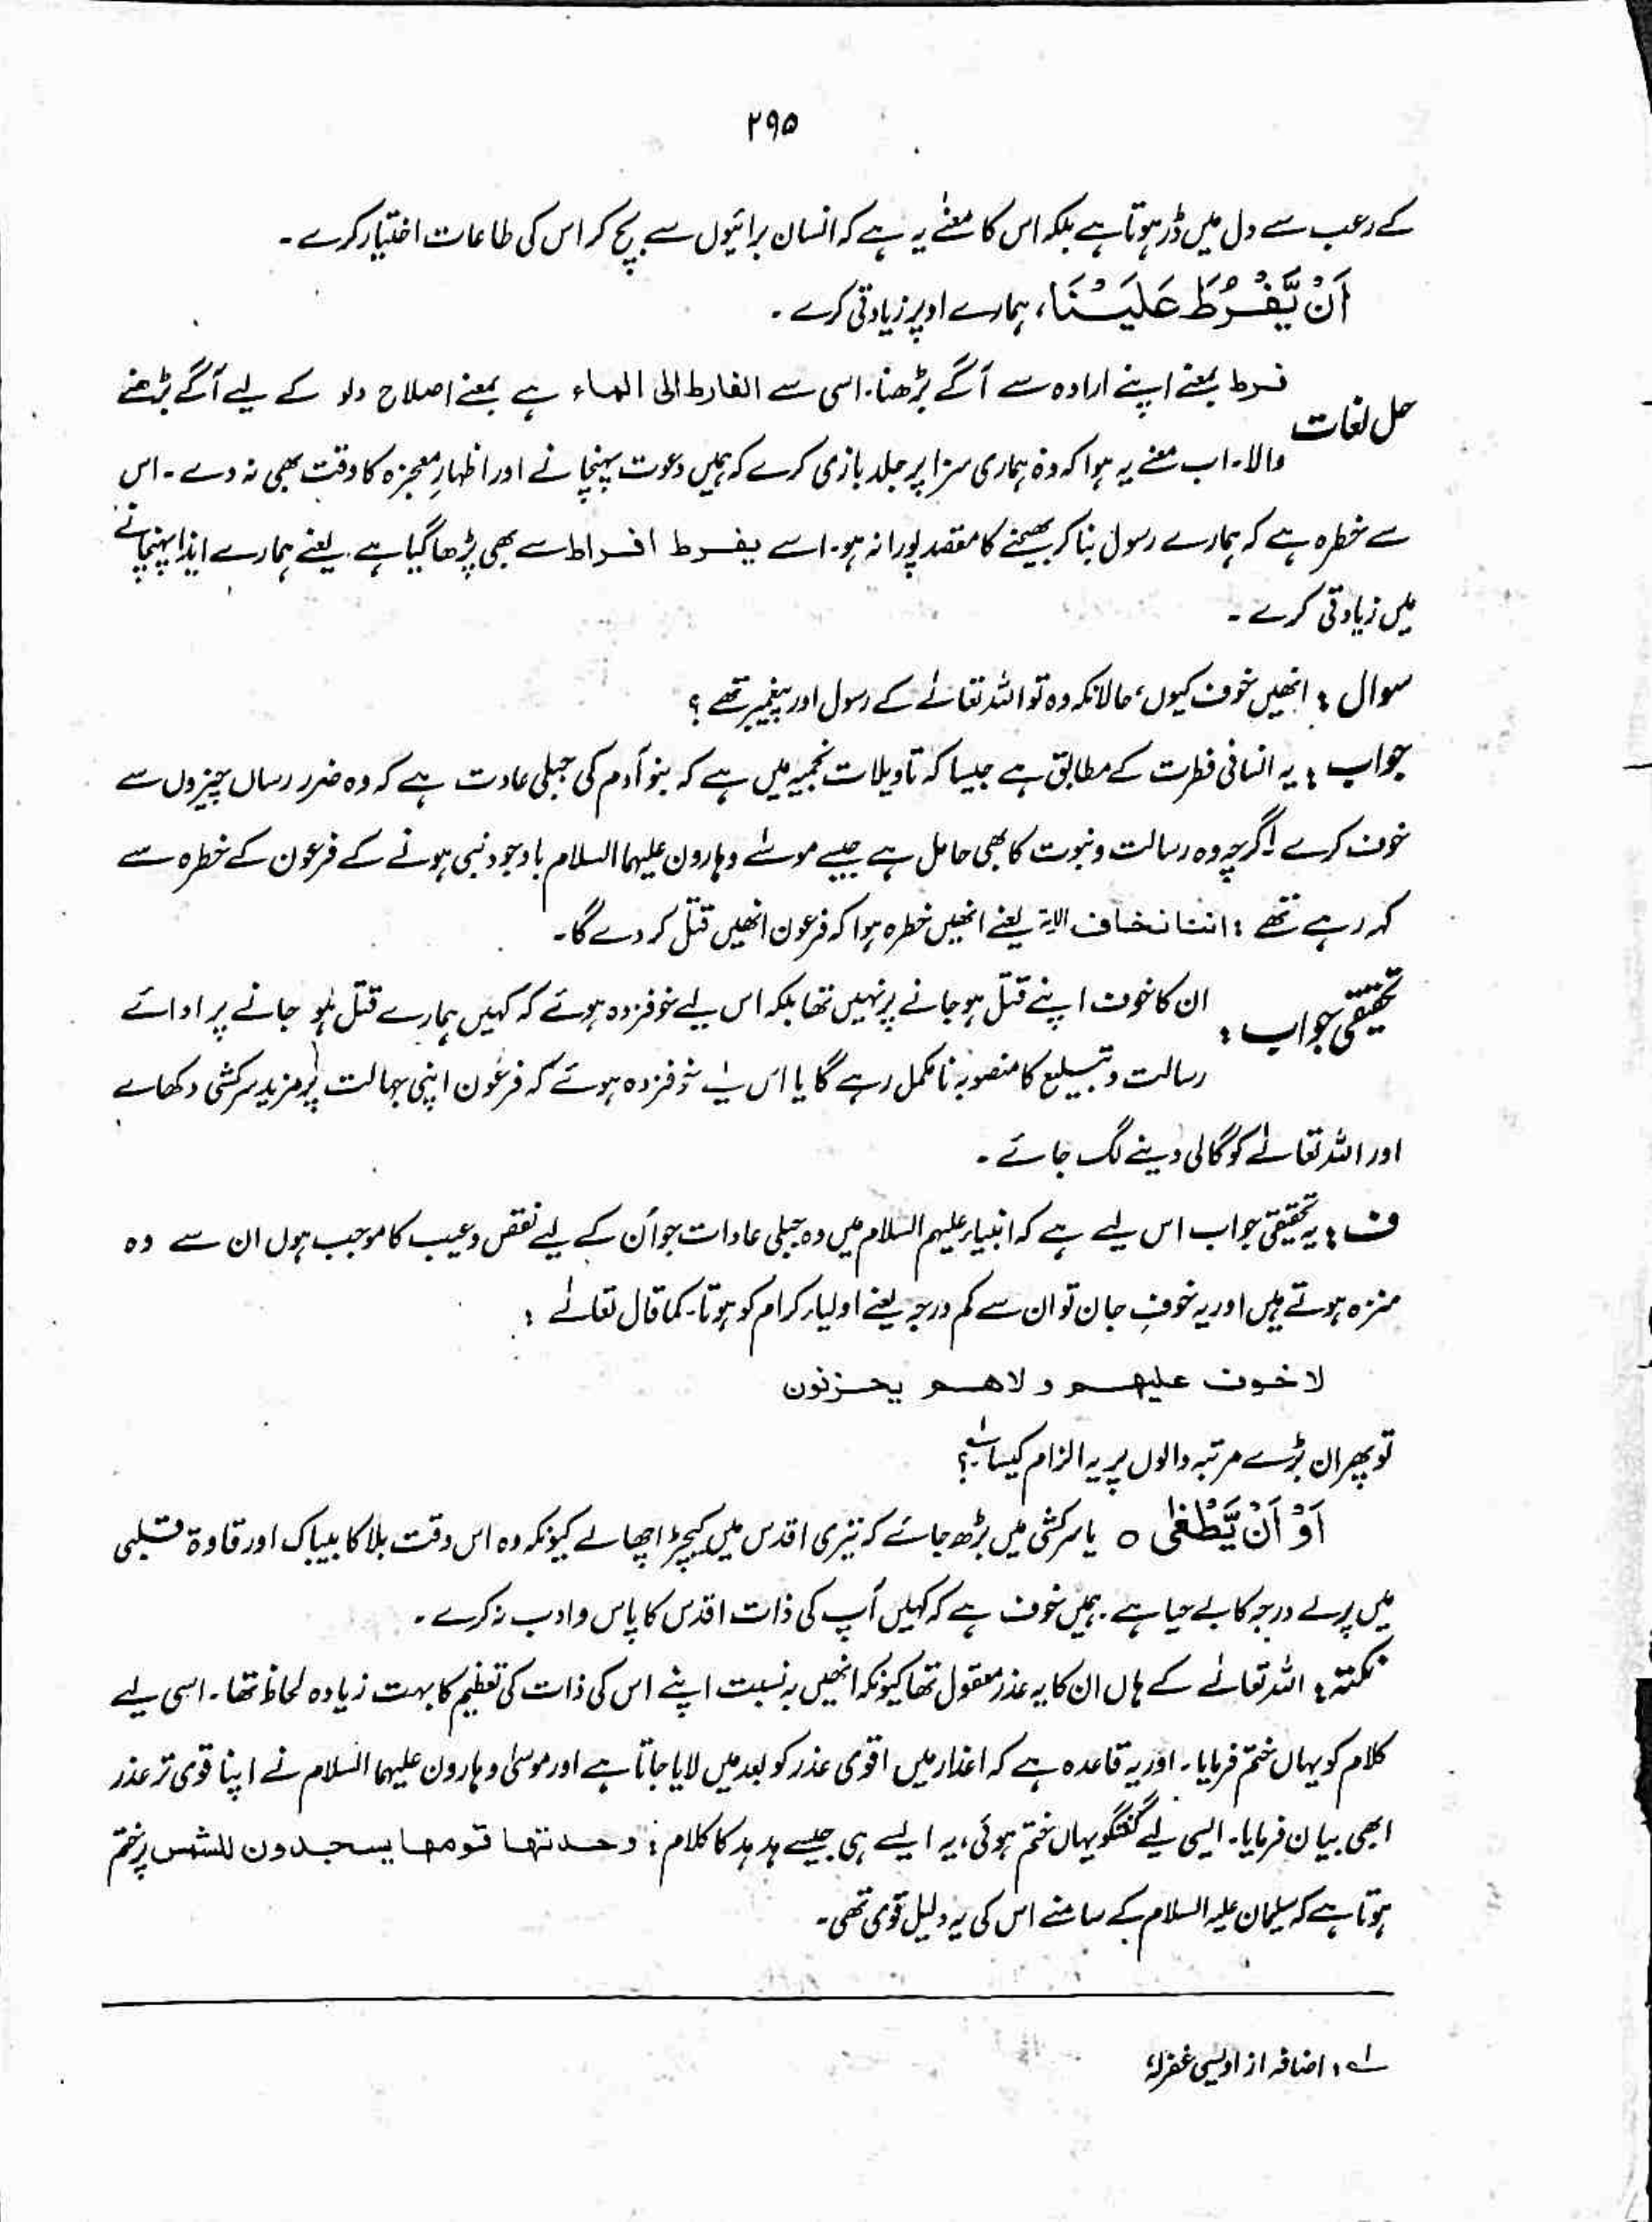 ۲۹۵
کے رعب سے دل میں ڈر ہوتا ہے بلکہ اس کا معنےٰ یہ ہے کہ انسان برائیوں سے بچ کر اس کی طاعات اختیار کرے ۔
اَنْ يَّفْرُطَ عَلَيْنَا، ہمارے اوپر زیادتی کرے ۔
حل لغات
فرط بمعنے اپنے ارادہ سے آگے بڑھنا۔ اسی سے الفارط الی الماء ہے بمعنے اصلاح دلو کے لیے آگے بڑھنے
والا۔ اب معنے یہ ہوا کہ وہ ہماری سزا پر جلد بازی کرے کہ ہمیں دعوت پہنچانے اور اظہارِ معجزہ کا وقت بھی نہ دے ۔ اس
سے خطرہ ہے کہ ہمارے رسول بنا کر بھیجنے کا مقصد پورا نہ ہو۔ اسے یفرط افراط سے بھی پڑھا گیا ہے ۔ یعنے ہمارے ایذا پہنچانے
میں زیادتی کرے ۔
سوال : انھیں خوف کیوں، حالانکہ وہ تو اللہ تعالےٰ کے رسول اور پیغمبر تھے ؟
جواب : یہ انسانی فطرت کے مطابق ہے جیسا کہ تاویلات نجمیہ میں ہے کہ بنو آدم کی جبلی عادت ہے کہ وہ ضرر رساں چیزوں سے
خوف کرے اگرچہ وہ رسالت و نبوت کا بھی حامل ہے جیسے موسےٰ و ہارون علیہما السلام باوجود نبی ہونے کے فرعون کے خطرہ سے
کہہ رہے تھے : اننا نخاف الایۃ یعنے انھیں خطرہ ہوا کہ فرعون انھیں قتل کر دے گا۔
تحقیقی جواب :
ان کا خوف اپنے قتل ہو جانے پر نہیں تھا بلکہ اس لیے خوفزدہ ہوئے کہ کہیں ہمارے قتل ہو جانے پر ادائے
رسالت و تبلیغ کا منصوبہ نامکمل رہے گا یا اس لیے خوفزدہ ہوئے کہ فرعون اپنی جہالت پر مزید سرکشی دکھائے
اور اللہ تعالےٰ کو گالی دینے لگ جائے ۔
ف : یہ تحقیقی جواب اس لیے ہے کہ انبیاء علیہم السلام میں وہ جبلی عادات جو اُن کے لیے نقص و عیب کا موجب ہوں ان سے وہ
منزہ ہوتے ہیں اور یہ خوفِ جان تو ان سے کم درجہ یعنے اولیاء کرام کو ہوتا۔ کما قال تعالےٰ :
لا خوف علیہم و لا ھم یحزنون
تو پھر ان بڑے مرتبہ والوں پر یہ الزام کیسا؟
اَوْ اَنْ يَّطْغٰى ○ یا سرکشی میں بڑھ جائے کہ تیری اقدس میں کیچڑ اچھالے کیونکہ وہ اس وقت بلا کا بیباک اور قاوۃ قلبی
میں پرلے درجہ کا بے حیا ہے ۔ ہمیں خوف ہے کہ کہیں آپ کی ذات اقدس کا پاس و ادب نہ کرے ۔
نکتہ : اللہ تعالےٰ کے ہاں ان کا یہ عذر معقول تھا کیونکہ انھیں بہ نسبت اپنے اس کی ذات کی تعظیم کا بہت زیادہ لحاظ تھا ۔ اسی لیے
کلام کو یہاں ختم فرمایا ۔ اور یہ قاعدہ ہے کہ اعذار میں اقوی عذر کو بعد میں لایا جاتا ہے اور موسیٰ و ہارون علیہما السلام نے اپنا قوی تر عذر
ابھی بیان فرمایا۔ ایسی لیے گفتگو یہاں ختم ہوئی، یہ ایسے ہی جیسے ہدہد کا کلام : وجدتھا قومھا یسجدون للشمس پر ختم
ہوتا ہے کہ سلیمان علیہ السلام کے سامنے اس کی یہ دلیل قوی تھی۔
لہ : اضافہ از اویسی غفرلہٗ